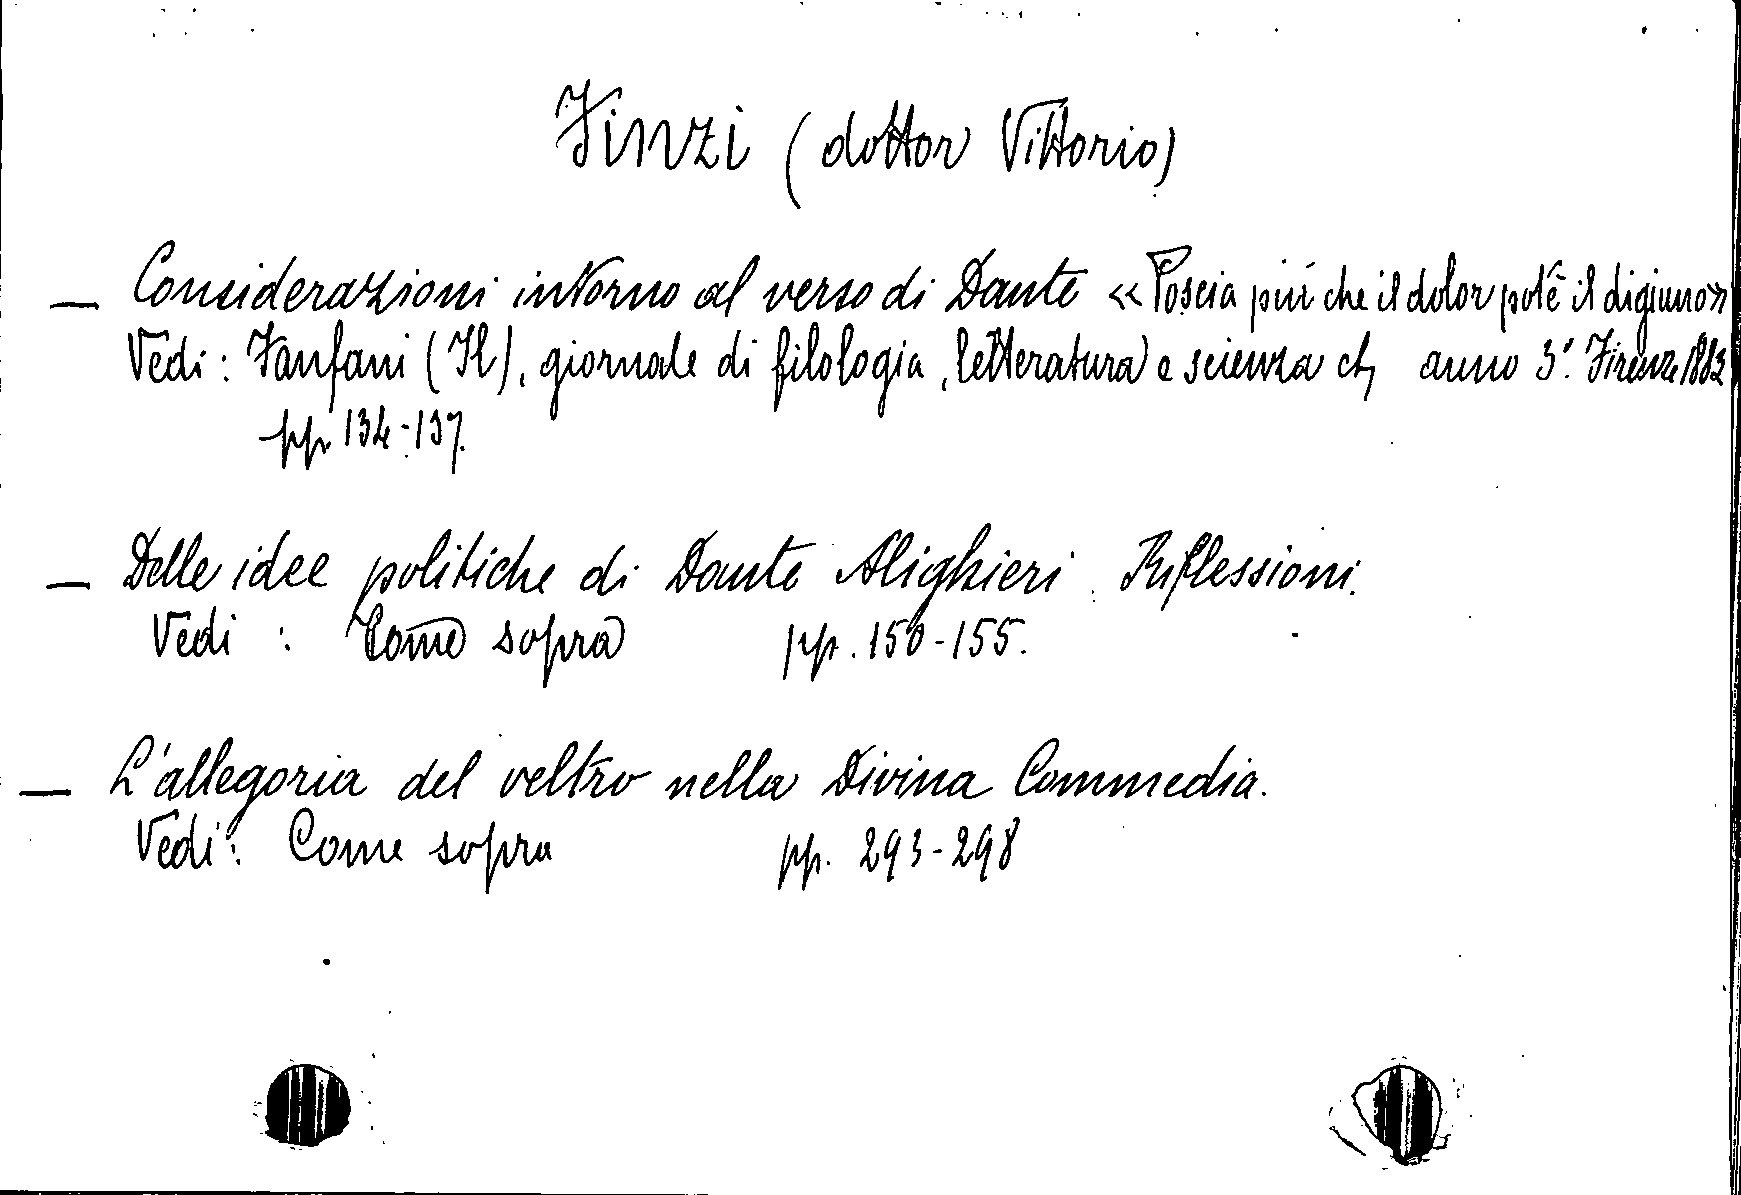 Finzi (dottor Vittorio)
— Considerazioni intorno al verso di Dante « Poscia più che il dolor potè il digiuno »
Vedi: Fanfani (Il), giornale di filologia, letteratura e scienza anno 3.° Firenze 1883
pp. 134-137.
— Delle idee politiche di Dante Alighieri. Riflessioni.
Vedi : Come sopra pp. 150-155.
— L'allegoria del veltro nella Divina Commedia.
Vedi: Come sopra pp. 293-298